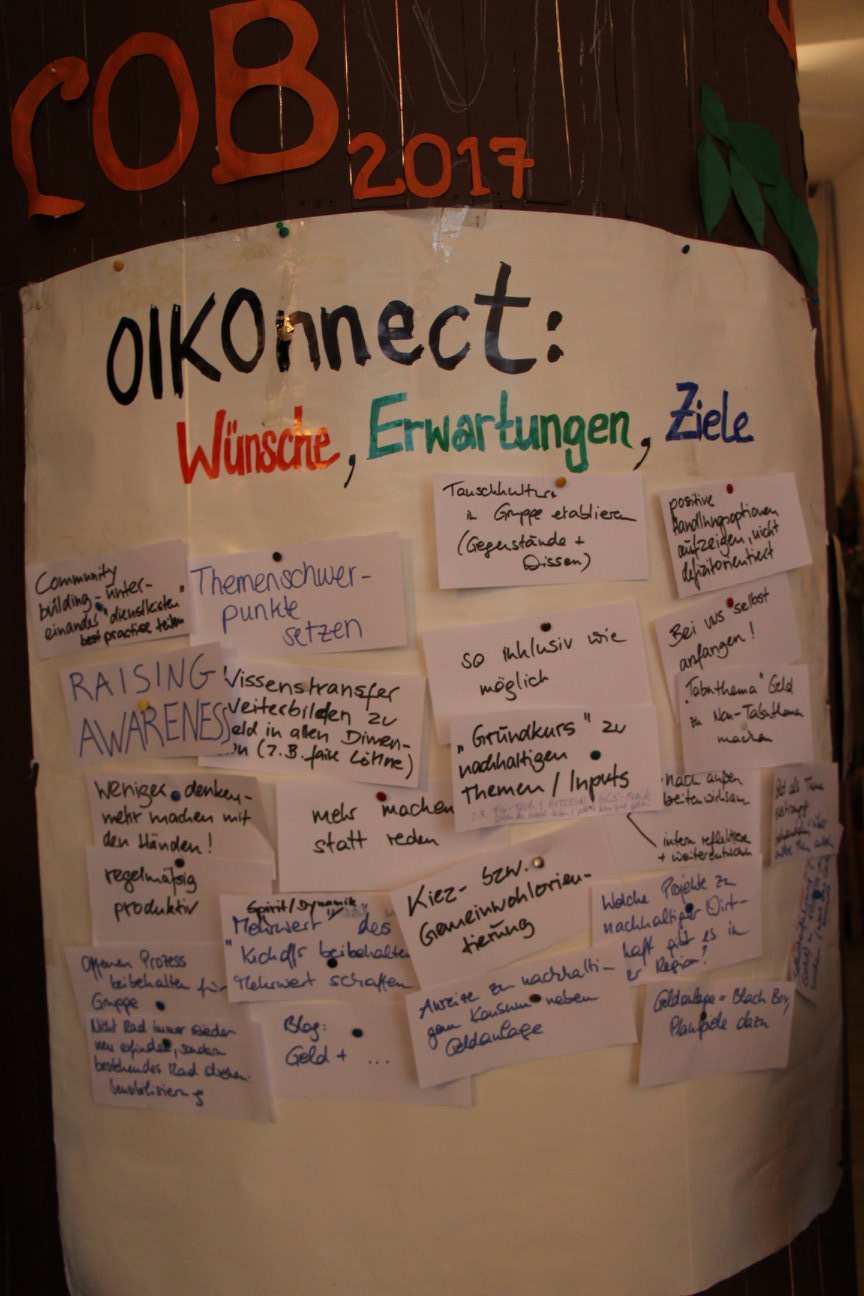 COB 2017
OIKOnnect:
Wünsche, Erwartungen, Ziele
Tauschkultur
in Gruppe etablieren
(Gegenstände +
Wissen)
positive
Handlungsoptionen
aufzeigen, nicht
defizitorientiert
Community
building - unter-
einander "dienstleisten"
best practice teilen
Themenschwer-
punkte
setzen
so inklusiv wie
möglich
Bei uns selbst
anfangen!
RAISING
AWARENESS
Wissenstransfer
Weiterbilden zu
Geld in allen Dimen-
(z.B. faire Löhne)
"Grundkurs" zu
nachhaltigen
Themen / Inputs
"Tabuthema" Geld
zu Non-Tabuthema
machen
weniger denken-
mehr machen mit
den Händen!
mehr machen
statt reden
nach außen
breitenwirksam
intern reflektieren
+ weiterentwickeln
Geld als Thema
regelmäßig
produktiv
Kiez- bzw.
Gemeinwohlorien-
tierung
Spirit/Dynamik
Mehrwert des
"Kickoffs beibehalten
Mehrwert schaffen
Welche Projekte zu
nachhaltiger Wirt-
haft gibt es in
er Region?
Offenen Prozess
beibehalten für
Gruppe
Anreize zu nachhalti-
gem Konsum neben
Geldanlage
Geldanlage = Black Box,
Planspiele dazu
Nicht Rad immer wieder
neu erfinden, sondern
bestehendes Rad drehen.
Sensibilisierung
Blog:
Geld + ...